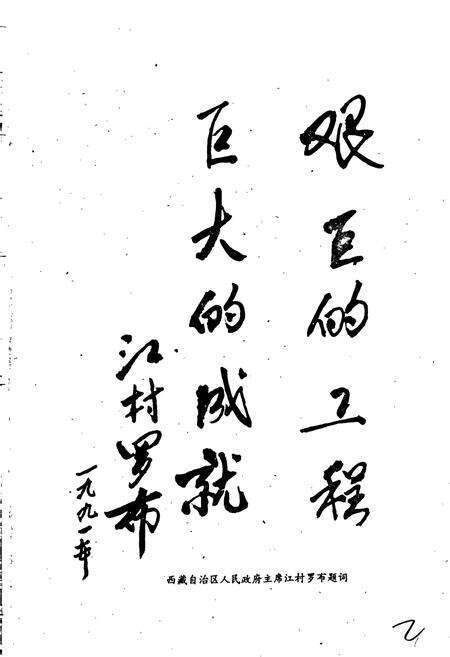 艰巨的工程
巨大的成就
江村罗布
一九九一年
西藏自治区人民政府主席江村罗布题词